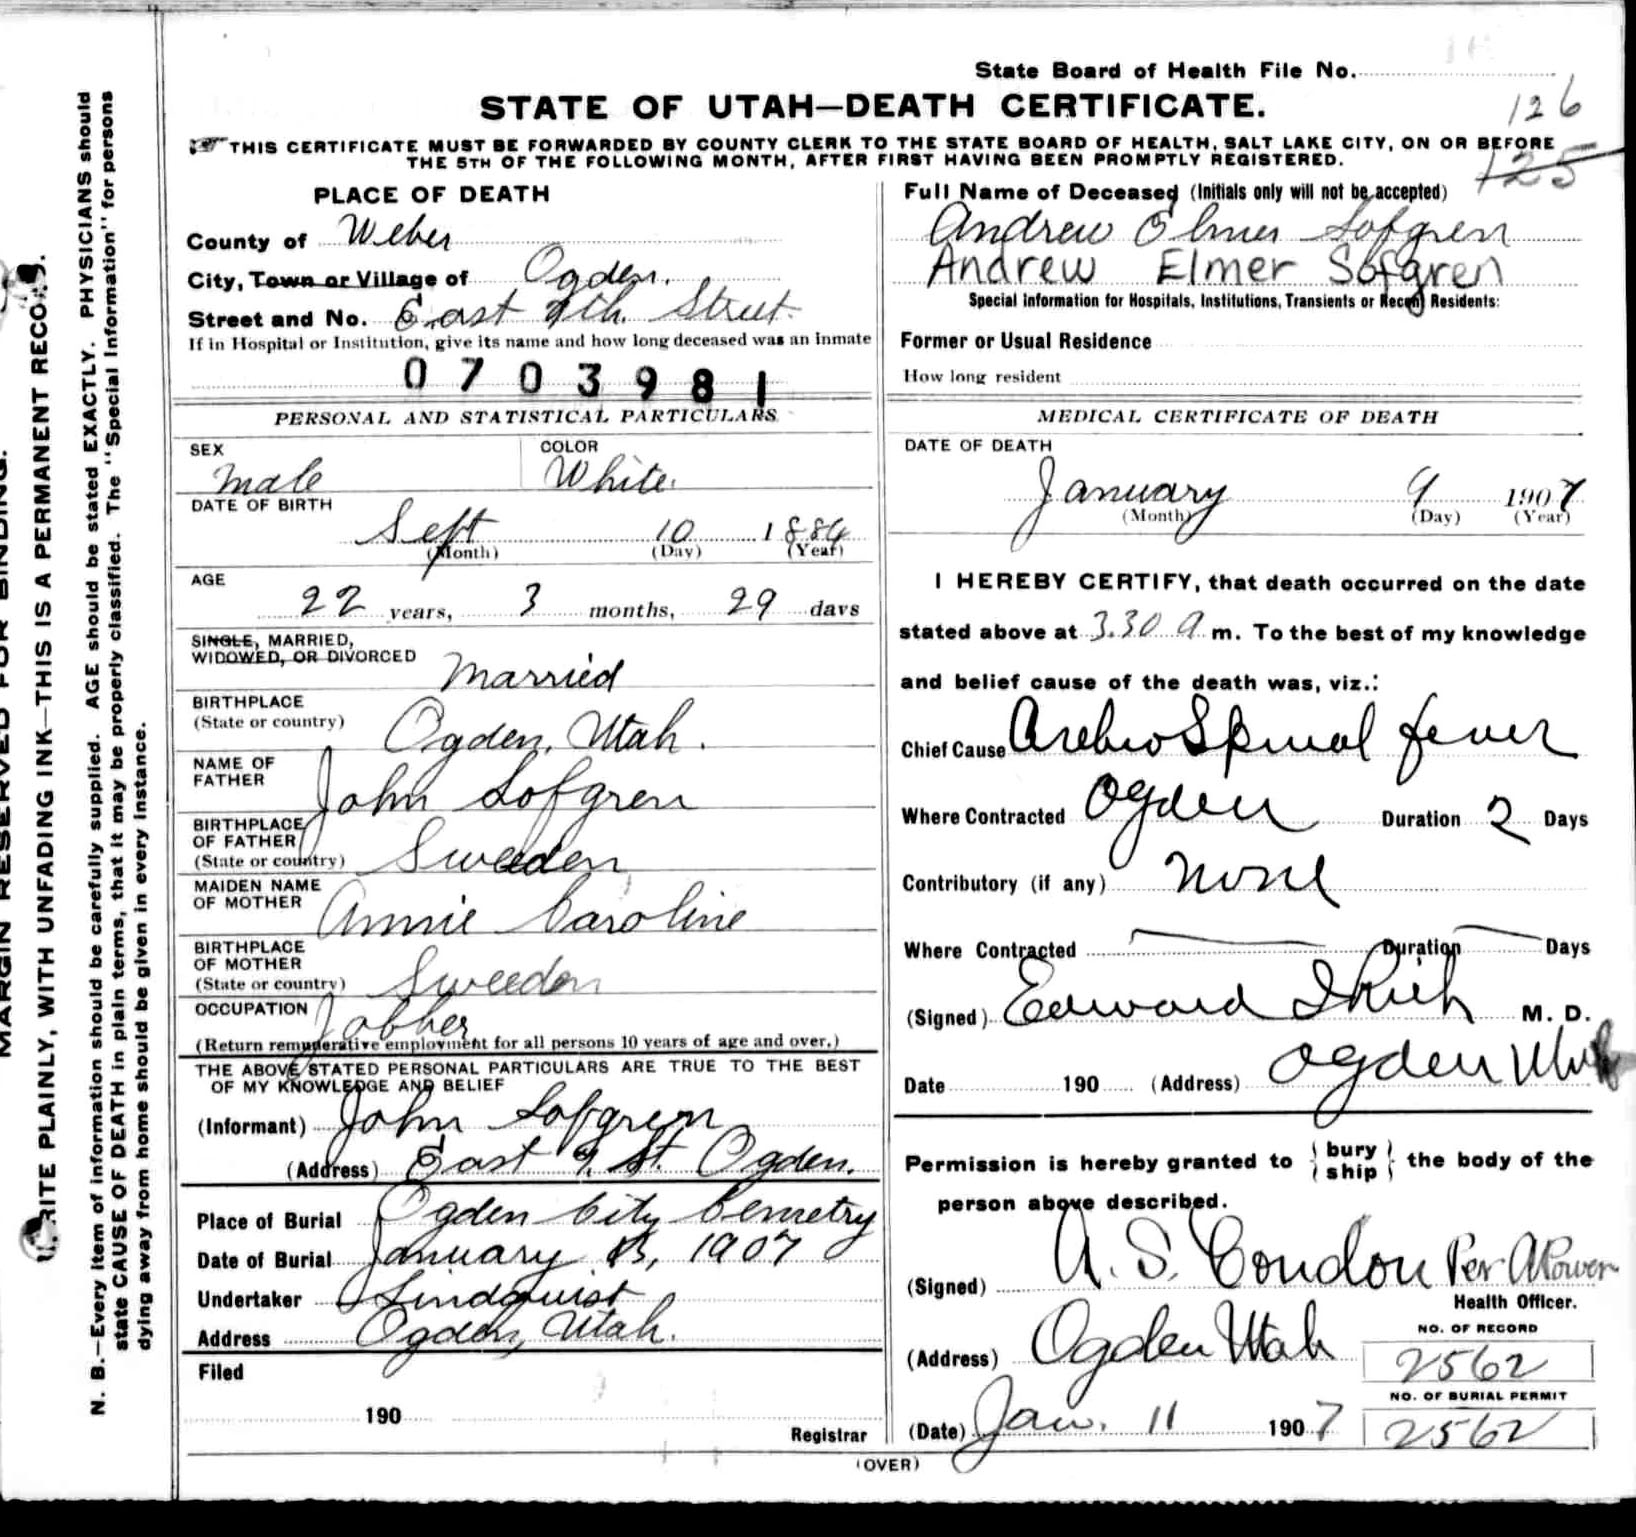 State Board of Health File No.
126
STATE OF UTAH—DEATH CERTIFICATE.
THIS CERTIFICATE MUST BE FORWARDED BY COUNTY CLERK TO THE STATE BOARD OF HEALTH, SALT LAKE CITY, ON OR BEFORE
THE 5TH OF THE FOLLOWING MONTH, AFTER FIRST HAVING BEEN PROMPTLY REGISTERED.
125
MARGIN RESERVED FOR BINDING.
WRITE PLAINLY, WITH UNFADING INK—THIS IS A PERMANENT RECORD.
N. B.—Every item of information should be carefully supplied. AGE should be stated EXACTLY. PHYSICIANS should
state CAUSE OF DEATH in plain terms, that it may be properly classified. The "Special Information" for persons
dying away from home should be given in every instance.
PLACE OF DEATH
County of Weber
City, Town or Village of Ogden.
Street and No. East 9th. Street.
If in Hospital or Institution, give its name and how long deceased was an inmate
0703981
PERSONAL AND STATISTICAL PARTICULARS
SEX
Male
COLOR
White.
DATE OF BIRTH
Sept 10 1884
(Month) (Day) (Year)
AGE
22 years, 3 months, 29 days
SINGLE, MARRIED,
WIDOWED, OR DIVORCED
Married
BIRTHPLACE
(State or country)
Ogden, Utah.
NAME OF
FATHER
John Sofgren
BIRTHPLACE
OF FATHER
(State or country)
Sweeden
MAIDEN NAME
OF MOTHER
Annie Caroline
BIRTHPLACE
OF MOTHER
(State or country)
Sweeden
OCCUPATION
Jobber
(Return remunerative employment for all persons 10 years of age and over.)
THE ABOVE STATED PERSONAL PARTICULARS ARE TRUE TO THE BEST
OF MY KNOWLEDGE AND BELIEF
(Informant) John Sofgren
(Address) East 9. St. Ogden.
Place of Burial Ogden City Cemetry
Date of Burial January 13, 1907
Undertaker Lindquist
Address Ogden, Utah.
Filed
190
Registrar
Full Name of Deceased (Initials only will not be accepted)
Andrew Elmer Sofgren
Andrew Elmer Sofgren
Special Information for Hospitals, Institutions, Transients or Recent Residents:
Former or Usual Residence
How long resident
MEDICAL CERTIFICATE OF DEATH
DATE OF DEATH
January 9 1907
(Month) (Day) (Year)
I HEREBY CERTIFY, that death occurred on the date
stated above at 3.30 a m. To the best of my knowledge
and belief cause of the death was, viz.:
Chief Cause Spinal fever
Where Contracted Ogden Duration 2 Days
Contributory (if any) None
Where Contracted Duration Days
(Signed) Edward I Rich M. D.
Date 190 (Address) Ogden Utah
Permission is hereby granted to { bury ship } the body of the
person above described.
(Signed) A. S. Condon Per
Health Officer.
(Address) Ogden Utah
NO. OF RECORD
2562
NO. OF BURIAL PERMIT
2562
(Date) Jan. 11 1907
(OVER)